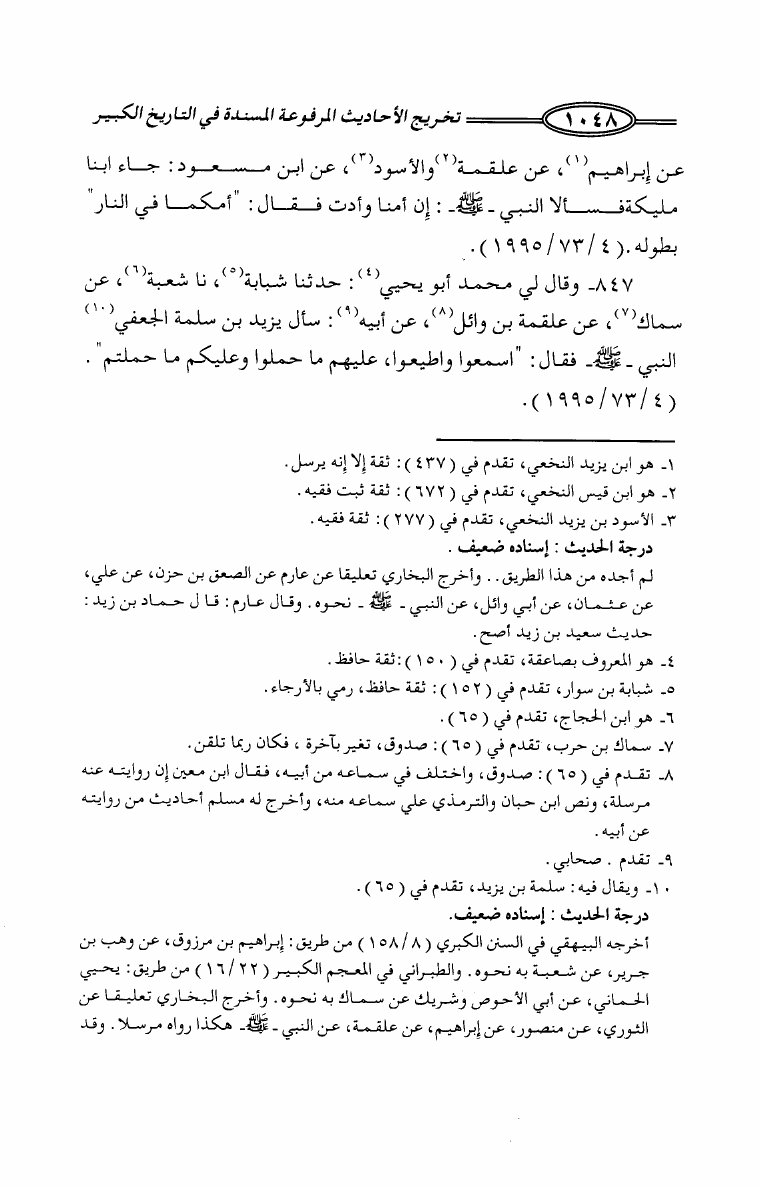 ١٠٤٨ تخريج الأحاديث المرفوعة المسندة في التاريخ الكبير
عن إبراهيم(١)، عن علقمة(٢) والأسود(٣)، عن ابن مسعود: جاء ابنا
مليكة فسألا النبي ـ ﷺ ـ : إن أمنا وأدت فقال: "أمكما في النار"
بطوله. (٤/ ٧٣/ ١٩٩٥).
٨٤٧ـ وقال لي محمد أبو يحيي(٤): حدثنا شبابة(٥)، نا شعبة(٦)، عن
سماك(٧)، عن علقمة بن وائل(٨)، عن أبيه(٩): سأل يزيد بن سلمة الجعفي(١٠)
النبي ـ ﷺ ـ فقال: "اسمعوا واطيعوا، عليهم ما حملوا وعليكم ما حملتم".
(٤/ ٧٣/ ١٩٩٥).
١ـ هو ابن يزيد النخعي، تقدم في (٤٣٧): ثقة إلا إنه يرسل.
٢ـ هو ابن قيس النخعي، تقدم في (٦٧٢): ثقة ثبت فقيه.
٣ـ الأسود بن يزيد النخعي، تقدم في (٢٧٧): ثقة فقيه.
درجة الحديث : إسناده ضعيف .
لم أجده من هذا الطريق.. وأخرج البخاري تعليقا عن عارم عن الصعق بن حزن، عن علي،
عن عثمان، عن أبي وائل، عن النبي ـ ﷺ ـ نحوه. وقال عارم: قا ل حماد بن زيد:
حديث سعيد بن زيد أصح.
٤ـ هو المعروف بصاعقة، تقدم في (١٥٠):ثقة حافظ.
٥ـ شبابة بن سوار، تقدم في (١٥٢): ثقة حافظ، رمي بالأرجاء.
٦ـ هو ابن الحجاج، تقدم في (٦٥).
٧ـ سماك بن حرب، تقدم في (٦٥): صدوق، تغير بآخرة ، فكان ربما تلقن.
٨ـ تقدم في (٦٥): صدوق، واختلف في سماعه من أبيه، فقال ابن معين إن روايته عنه
مرسلة، ونص ابن حبان والترمذي علي سماعه منه، وأخرج له مسلم أحاديث من روايته
عن أبيه.
٩ـ تقدم . صحابي.
١٠ـ ويقال فيه: سلمة بن يزيد، تقدم في (٦٥).
درجة الحديث : إسناده ضعيف.
أخرجه البيهقي في السنن الكبري (٨/ ١٥٨) من طريق: إبراهيم بن مرزوق، عن وهب بن
جرير، عن شعبة به نحوه. والطبراني في المعجم الكبير (٢٢/ ١٦) من طريق: يحيي
الحماني، عن أبي الأحوص وشريك عن سماك به نحوه. وأخرج البخاري تعليقا عن
الثوري، عن منصور، عن إبراهيم، عن علقمة، عن النبي ـ ﷺ ـ هكذا رواه مرسلا. وقد